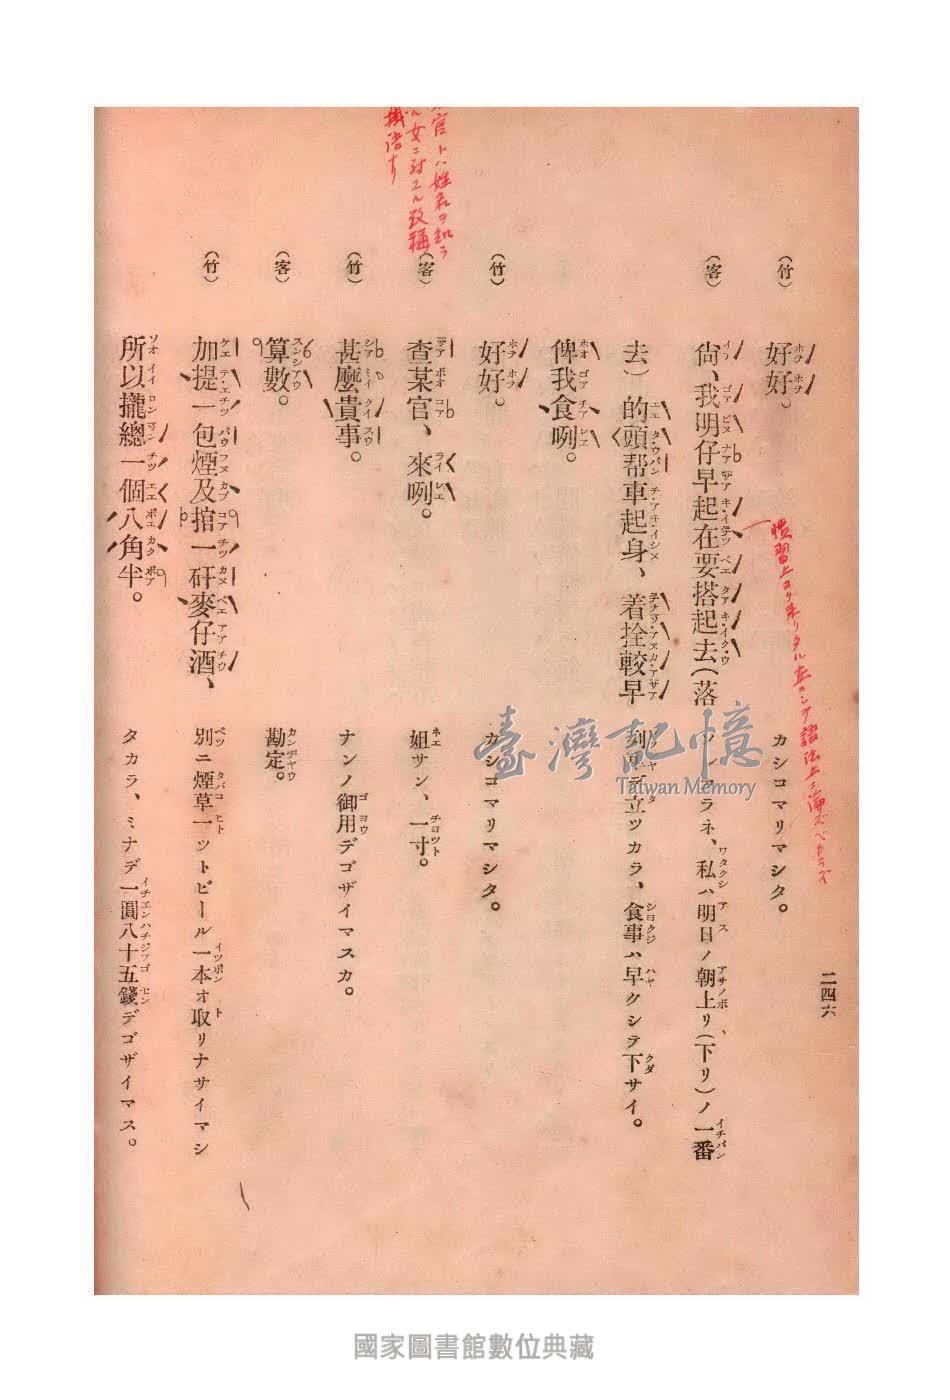 二四六
(竹) 好好。 カシコマリマシタ。
(客) 尙、我明仔早起在要搭起去(落 ソンナラネ、私ハ明日ノ朝上リ(下リ)ノ一番
去)的頭帮車起身、着拴較早 列車デ立ツカラ、食事ハ早クシテ下サイ。
俾我食咧。
(竹) 好好。 カシコマリマシタ。
(客) 查某官、來咧。 姐サン、一寸。
(竹) 甚麼貴事。 ナンノ御用デゴザイマスカ。
(客) 算數。 勘定。
(竹) 加提一包煙及捾一矸麥仔酒、 別ニ煙草一ツトビール一本オ取リナサイマシ
所以攏總一個八角半。 タカラ、ミナデ一圓八十五錢デゴザイマス。
慣習上ヨリ來リタル在ニシテ語法上ニ論ズベカラズ
官トハ姓名ヲ知ラ
女ニ對スル敬稱
臺灣記憶
Taiwan Memory
國家圖書館數位典藏